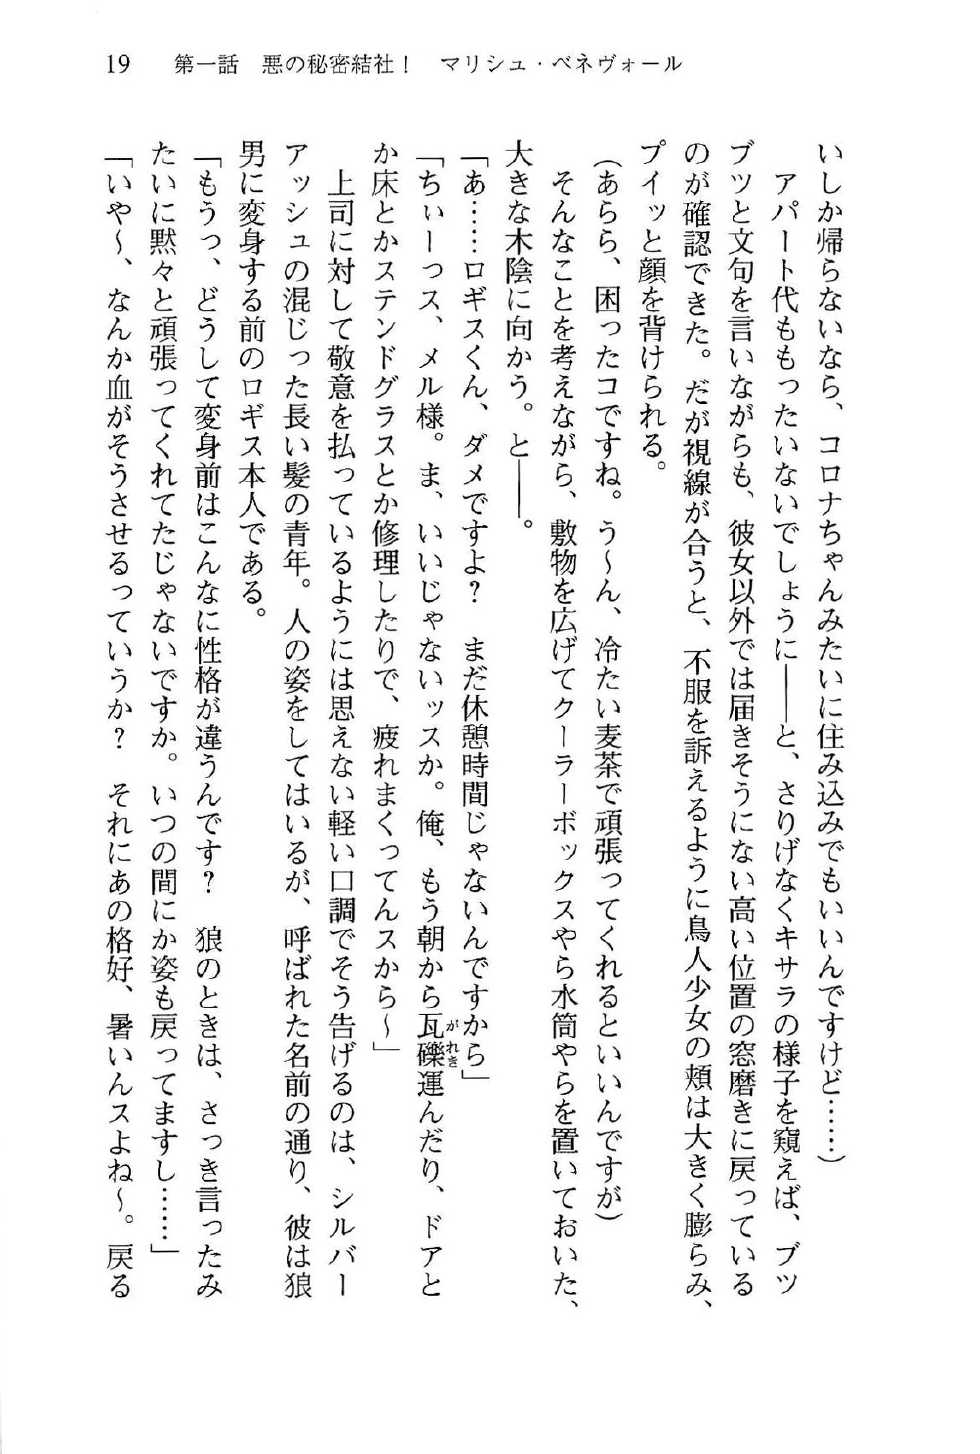 19　第一話　悪の秘密結社！　マリシュ・ベネヴォール
いしか帰らないなら、コロナちゃんみたいに住み込みでもいいんですけど……）
　アパート代ももったいないでしょうに――と、さりげなくキサラの様子を窺えば、ブツ
ブツと文句を言いながらも、彼女以外では届きそうにない高い位置の窓磨きに戻っている
のが確認できた。だが視線が合うと、不服を訴えるように鳥人少女の頬は大きく膨らみ、
プイッと顔を背けられる。
（あらら、困ったコですね。う～ん、冷たい麦茶で頑張ってくれるといいんですが）
　そんなことを考えながら、敷物を広げてクーラーボックスやら水筒やらを置いておいた、
大きな木陰に向かう。と――。
「あ……ロギスくん、ダメですよ？　まだ休憩時間じゃないんですから」
「ちぃーっス、メル様。ま、いいじゃないッスか。俺、もう朝から瓦礫運んだり、ドアと
がれき
か床とかステンドグラスとか修理したりで、疲れまくってんスから～」
　上司に対して敬意を払っているようには思えない軽い口調でそう告げるのは、シルバー
アッシュの混じった長い髪の青年。人の姿をしてはいるが、呼ばれた名前の通り、彼は狼
男に変身する前のロギス本人である。
「もうっ、どうして変身前はこんなに性格が違うんです？　狼のときは、さっき言ったみ
たいに黙々と頑張ってくれてたじゃないですか。いつの間にか姿も戻ってますし……」
「いや～、なんか血がそうさせるっていうか？　それにあの格好、暑いんスよね～。戻る